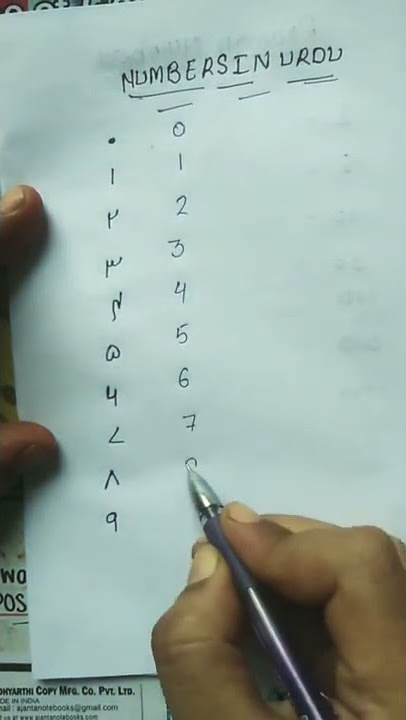 NUMBERS IN URDU
۰ 0
۱ 1
۲ 2
۳ 3
۴ 4
۵ 5
۶ 6
۷ 7
۸
۹
POS
DHYARTHI COPY MFG. CO. PVT. LTD.
DE IN INDIA
mail : ajantanotebooks@gmail.com
it us at www.ajantanotebooks.com